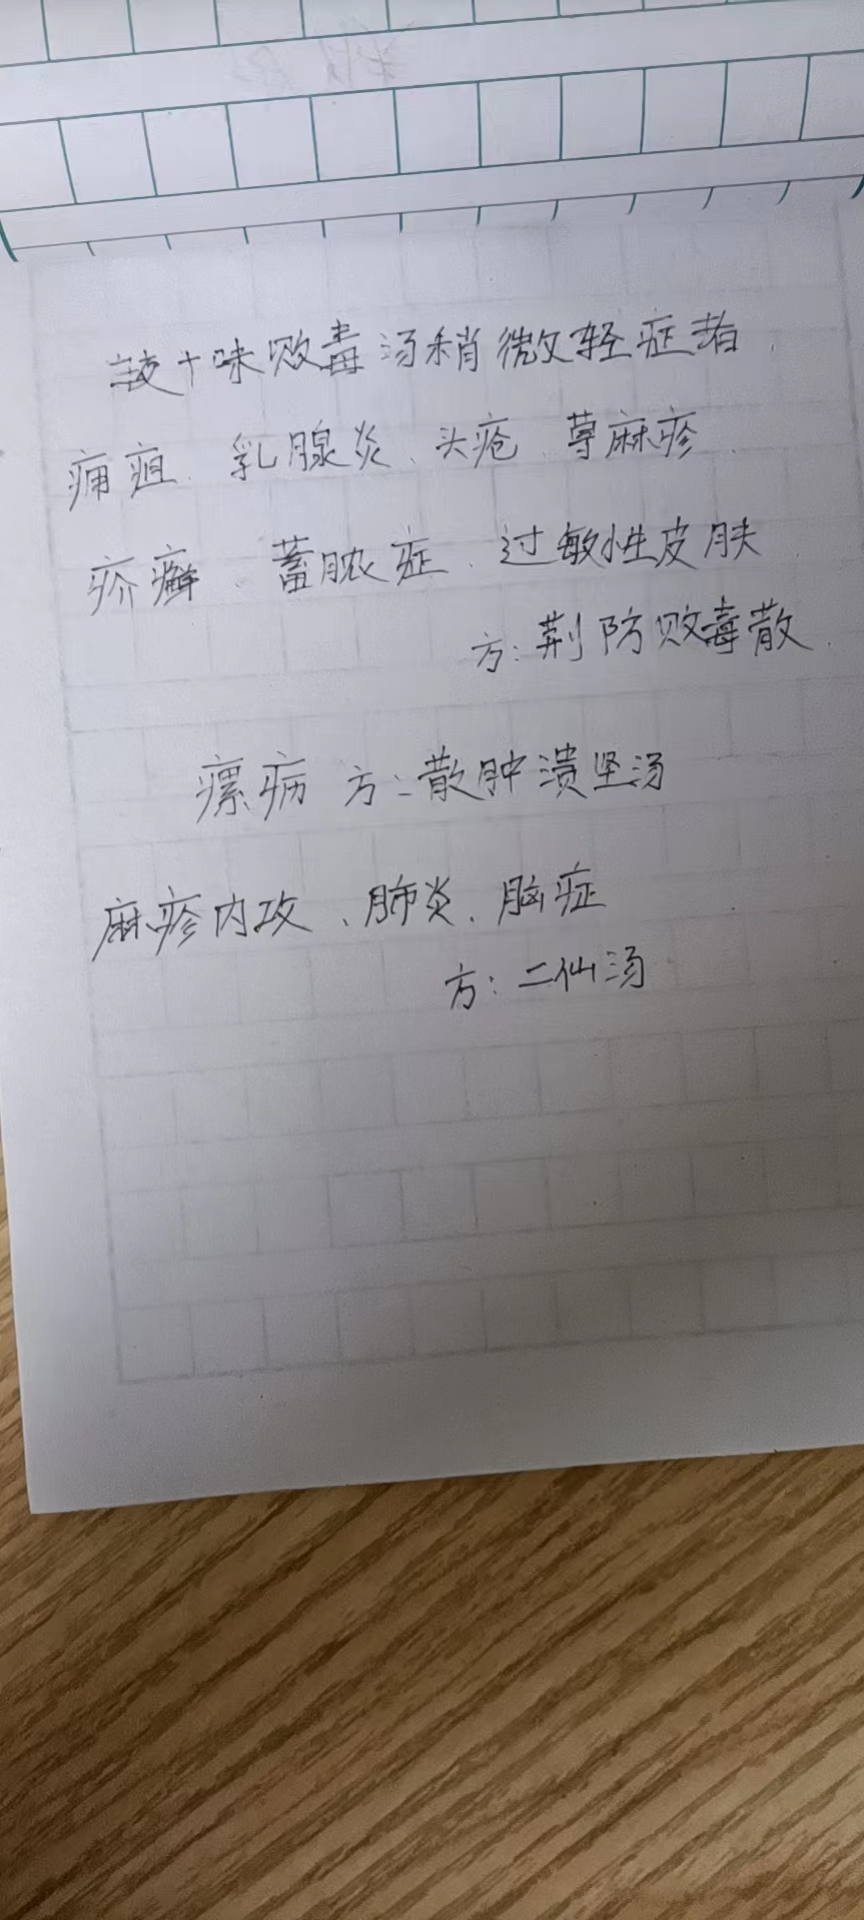 较十味败毒汤稍微轻症者、
痈疽、乳腺炎、头疮、荨麻疹、
疥癣、蓄脓症、过敏性皮肤
方:荆防败毒散、
瘰疬 方:散肿溃坚汤
麻疹内攻、肺炎、脑症
方:二仙汤